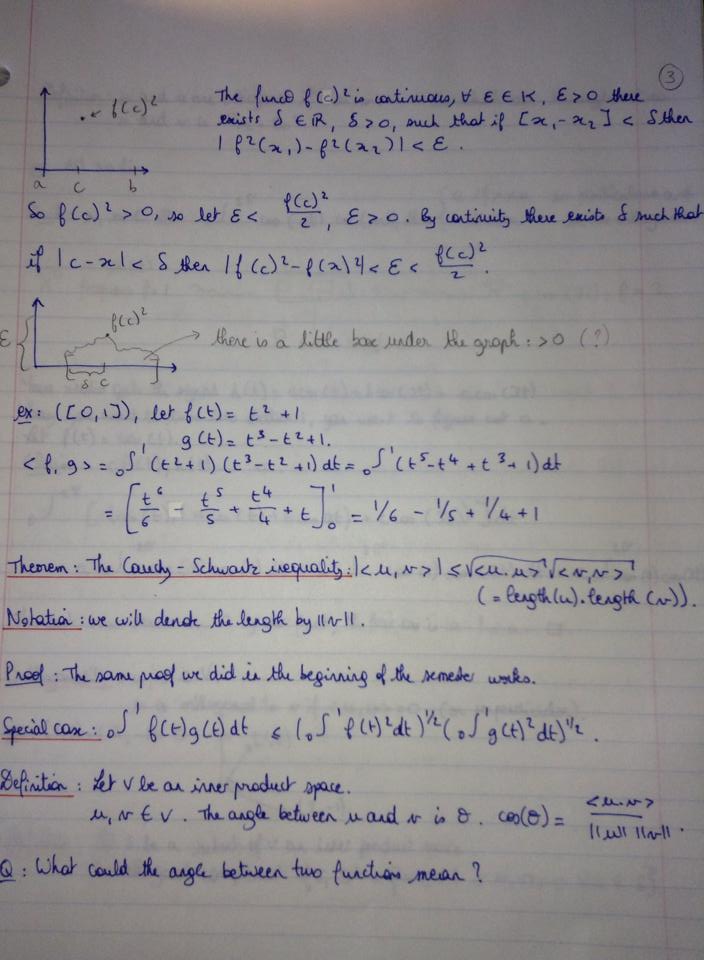 ③
f(c)²
The funcº f(c)² is continuous, ∀ ε ∈ K, ε>0 there
exists δ ∈ ℝ, δ>0, such that if [x₁-x₂] < δ then
| f²(x₁)-f²(x₂)| < ε.
a c b
So f(c)² > 0, so let ε < f(c)²/2, ε > 0. By continuity there exists δ such that
if |c-x| < δ then |f(c)²-f(x)²| < ε < f(c)²/2.
f(c)²
ε
there is a little box under the graph: >0 (?)
δ c
ex: ([0,1]), let f(t) = t²+1
g(t) = t³-t²+1.
<f, g> = ₀∫¹ (t²+1) (t³-t²+1) dt = ₀∫¹ (t⁵-t⁴+t³+1) dt
= [t⁶/6 - t⁵/5 + t⁴/4 + t]₀¹ = 1/6 - 1/5 + 1/4 + 1
Theorem: The Cauchy-Schwartz inequality: |<u,v>| ≤ √<u.u> √<v,v>
(= length(u). length(v)).
Notation: we will denote the length by ||v||.
Proof: The same proof we did in the beginning of the semester works.
Special case: ₀∫¹ f(t)g(t) dt ≤ (₀∫¹ f(t)² dt)^1/2 (₀∫¹ g(t)² dt)^1/2.
Definition: Let V be an inner product space.
u, v ∈ V. The angle between u and v is θ. cos(θ) = <u.v>/||u|| ||v||.
Q: What could the angle between two functions mean?